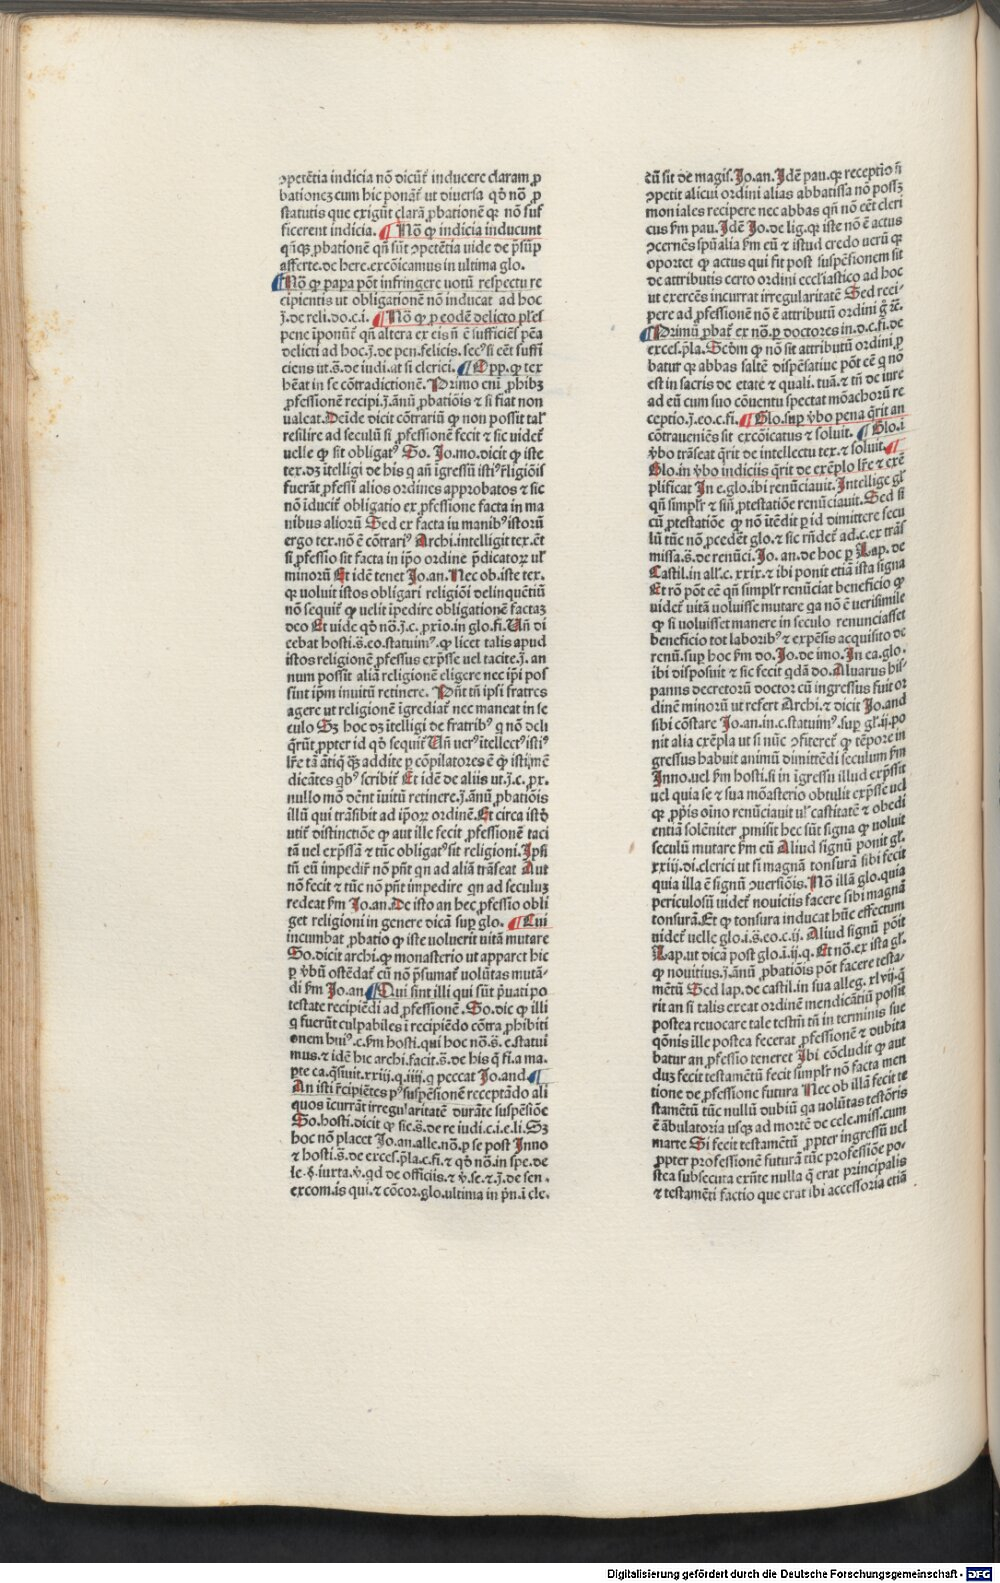 ꝯpetētia indicia nō dicūt᷑ inducere claram ꝓ
bationeꝫ cum hic ponāt᷑ ut diuersa qd̄ nō ꝓ
statutis que exigūt clarā ꝓbationē qꝛ nō suf
ficerent indicia. ¶ Nō ꝙ indicia inducunt
qn̄qꝫ ꝓbationē qn̄ sūt ꝯpetētia vide de p̄sūp
afferte.de here.excōicamus in ultima glo.
¶ Nō ꝙ papa pōt infringere uotū respectu re
cipientis ut obligationē nō inducat ad hoc
j̄.de reli.do.c.i. ¶ Nō ꝙ ꝓ eodē delicto pl̄es
pene īponūt᷑ qn̄ altera ex eis n̄ ē sufficiēs pēa
delicti ad hoc.j̄.de pen.felicis.secꝰ si eēt suffi
ciens ut.s̄.de iudi.at si clerici. ¶ Opp.ꝙ tex
hēat in se cōtradictionē. Primo eni ꝓhibꝫ
ꝓfessionē recipi.j̄.ānū ꝓbatiōis ⁊ si fiat non
ualeat. Deīde dicit cōtrariū ꝙ non possit tal᷑
resilire ad seculū si ꝓfessionē fecit ⁊ sic uidet᷑
uelle ꝙ sit obligatꝰ So. Jo.mo.dicit ꝙ iste
tex.dꝫ ītelligi de his q an̄ īgressū istiꝰ r̄ligiōis
fuerāt ꝓfessi alios ordines approbatos ⁊ sic
nō īducit᷑ obligatio ex ꝓfessione facta in ma
nibus aliorū Sed ex facta iu manibꝰ istorū
ergo tex.nō ē cōtrariꝰ Archi.intelligit tex.ēt
si ꝓfessio sit facta in ip̄o ordine p̄dicatoꝝ ul᷑
minorū Et idē tenet Jo.an. Nec ob.iste tex.
qꝛ uoluit istos obligari religiōi delinquētiū
nō sequit᷑ ꝙ uelit īpedire obligationē factaꝫ
deo Et vide qd̄ nō.j̄.c.ꝓxio.in glo.fi. Un̄ di
cebat hosti.s̄.eo.statuimꝰ.ꝙ licet talis apud
istos religionē ꝓfessus exp̄sse uel tacite.j̄.an
num possit aliā religionē eligere nec ip̄i pos
sint ip̄m inuitū retinere. Pn̄t tn̄ ip̄si fratres
agere ut religionē īgrediat᷑ nec maneat in se
culo Sꝫ hoc dꝫ ītelligi de fratribꝰ q nō deli
q̄rūt ꝓpter id qd̄ sequit᷑ Un̄ uerꝰ ītellectꝰ istiꝰ
lr̄e tā ātiq̄ qꝫ addite ꝑ cōpilatores ē ꝙ isti mē
dicātes qbꝰ scribit᷑ Et idē de aliis ut.j̄.c.ꝓx.
nullo mō dēnt īuitū retinere.j̄.ānū ꝓbatiōis
illū qui trāsibit ad ip̄oꝝ ordinē. Et circa istd̄
utit᷑ distinctiōe ꝙ aut ille fecit ꝓfessionē taci
tā vel exp̄ssā ⁊ tūc obligatꝰ sit religioni. Ip̄si
tn̄ eū impedir᷑ nō pn̄t qn ad aliā trāseat Aut
nō fecit ⁊ tūc nō pn̄t impedire qn ad seculuꝫ
redeat ẜm Jo.an. De isto an hec ꝓfessio obli
get religioni in genere dicā suꝑ glo. ¶ Cui
incumbat ꝓbatio ꝙ iste voluerit uitā mutare
So.dicit archi.ꝙ monasterio ut apparet hic
ꝑ v̄bū ostēdat᷑ cū nō p̄sumat᷑ volūtas mutā-
di ẜm Jo.an ¶ Qui sint illi qui sūt p̄uati po
testate recipiēdi ad ꝓfessionē. So.dic ꝙ illi
q fuerūt culpabiles ī recipiēdo cōtra ꝓhibiti
onem huiꝰ.c.ẜm hosti.qui hoc nō.s̄.e.statui
mus.⁊ idē hic archi.facit.s̄.de his q̄ fi.a ma.
ꝑte ca.q̄siuit.xxiij.q.iiij.q peccat Jo.and. ¶
An isti r̄cipiētes pꝰ suspēsionē receptādo ali
quos īcurrāt irregularitatē durāte suspēsiōe
So.hosti.dicit ꝙ sic.s̄.de re iudi.c.i.e.li. Sꝫ
hoc nō placet Jo.an.alle.nō.ꝑ se post Inno
⁊ hosti.s̄.de exces.p̄la.c.fi.⁊ qd̄ nō.in spe.de
le.§.iurta.v̄.qd de officiis.⁊ v̄.se.⁊.j̄.de sen.
excom.is qui.⁊ cōcor.glo.ultima in p̄n.ī cle.
cū sit de magis̄. Jo.an. Idē pau.qꝛ receptio n̄
ꝯpetit alicui ordini alias abbatissa nō possꝫ
moniales recipere nec abbas qn̄ nō eēt cleri
cus ẜm pau. Idē Jo.de lig.qꝛ iste nō ē actus
ꝯcernēs spūalia ẜm eū ⁊ istud credo uerū qꝛ
oportet ꝙ actus qui fit post suspēsionem sit
de attributis certo ordini eccl̄iastico ad hoc
ut exercēs incurrat irregularitatē Sed reci-
pere ad ꝓfessionē nō ē attributū ordini g̊ ⁊c̄.
¶ Primū ꝓbat᷑ ex nō.ꝑ doctores in.d.c.fi.de
exces.p̄la. Scd̄m ꝙ nō sit attributū ordini ꝓ
batur qꝛ abbas saltē dispēsatiue pōt eē q nō
est in sacris de etate ⁊ quali.tuā.⁊ tn̄ de iure
ad eū cum suo cōuentu spectat mōachorū re
ceptio.j̄.eo.c.fi. ¶ Glo.suꝑ v̄bo pena q̄rit an
cōtraueniēs sit excōicatus ⁊ soluit. ¶ Glo.i
v̄bo trāseat q̄rit de intellectu tex.⁊ soluit. ¶
Glo.in v̄bo indiciis q̄rit de exēplo lr̄e ⁊ exē
plificat In e.glo.ibi renūciauit. Intellige gl᷑
qn̄ simplr᷑ ⁊ sin̄ ꝓtestatiōe renūciauit. Sed si
cū ꝓtestatiōe ꝙ nō ītēdit ꝑ id dimittere secu
lū tūc nō ꝓcedēt glo.⁊ sic rn̄det᷑ ad.c.ex trās
missa.s̄.de renūci. Jo.an.de hoc ꝑ Lap.de
Castil.in all᷑.c.xxix.⁊ ibi ponit etiā ista signa
Et rō pōt eē qn̄ simplr᷑ renūciat beneficio ꝙ
videt᷑ vitā voluisse mutare qa nō ē verisimile
ꝙ si voluisset manere in seculo renunciasset
beneficio tot laboribꝰ ⁊ expēsis acquisito de
renū.suꝑ hoc ẜm do. Jo.de imo. In ea.glo.
ibi disposuit ⁊ sic fecit qdā do. Aluarus his-
panns decretorū doctor cū ingressus fuit or
dinē minorū ut refert Archi.⁊ dicit Jo.and
sibi cōstare Jo.an.in.c.statuimꝰ.suꝑ gl᷑.ij.po
nit alia exēpla ut si nūc ꝯfiteret᷑ ꝙ tēpore in
gressus habuit animū dimittēdi seculum ẜm
Inno.uel ẜm hosti.si in īgressu illud exp̄ssit
uel quia se ⁊ sua mōasterio obtulit exp̄sse uel
qꝛ ꝓpis oīno renūciauit ul᷑ castitatē ⁊ obedi
entiā solēniter ꝓmisit hec sūt signa ꝙ uoluit
seculū mutare ẜm eū Aliud signū ponit gl᷑.
xxiij.di.clerici ut si magnā tonsurā sibi fecit
quia illa ē signū ꝯuersiōis. Nō illā glo.quia
periculosū uidet᷑ nouiciis facere sibi magnā
tonsurā. Et ꝙ tonsura inducat hūc effectum
uidet᷑ uelle glo.i.s̄.eo.c.ij. Aliud signū pōit
Lap.ut dicā post glo.ī.ij.q. Et nō.ex ista gl᷑.
ꝙ nouitius.j̄.ānū ꝓbatiōis pōt facere testa-
mētū Sed lap.de castil.in sua alleg.xlvij.q̄
rit an si talis exeat ordinē mendicātiū possit
postea reuocare tale testm̄ tn̄ in terminis sue
qōnis ille postea fecerat ꝓfessionē ⁊ dubita
batur an ꝓfessio teneret Ibi cōcludit ꝙ aut
duꝫ fecit testamētū fecit simplr᷑ nō facta men
tione de ꝓfessione futura Nec ob illā fecit te
stamētū tūc nullū dubiū qa uolūtas testōris
ē ābulatoria usqꝫ ad mortē de cele.miss.cum
marte Si fecit testamētū ꝓpter ingressū uel
ꝓpter professionē futurā tūc ꝓfessiōe po-
stea subsecuta exn̄te nulla q̄ erat principalis
⁊ testamēti factio que erat ibi accessoria etiā
Digitalisierung gefördert durch die Deutsche Forschungsgemeinschaft - DFG